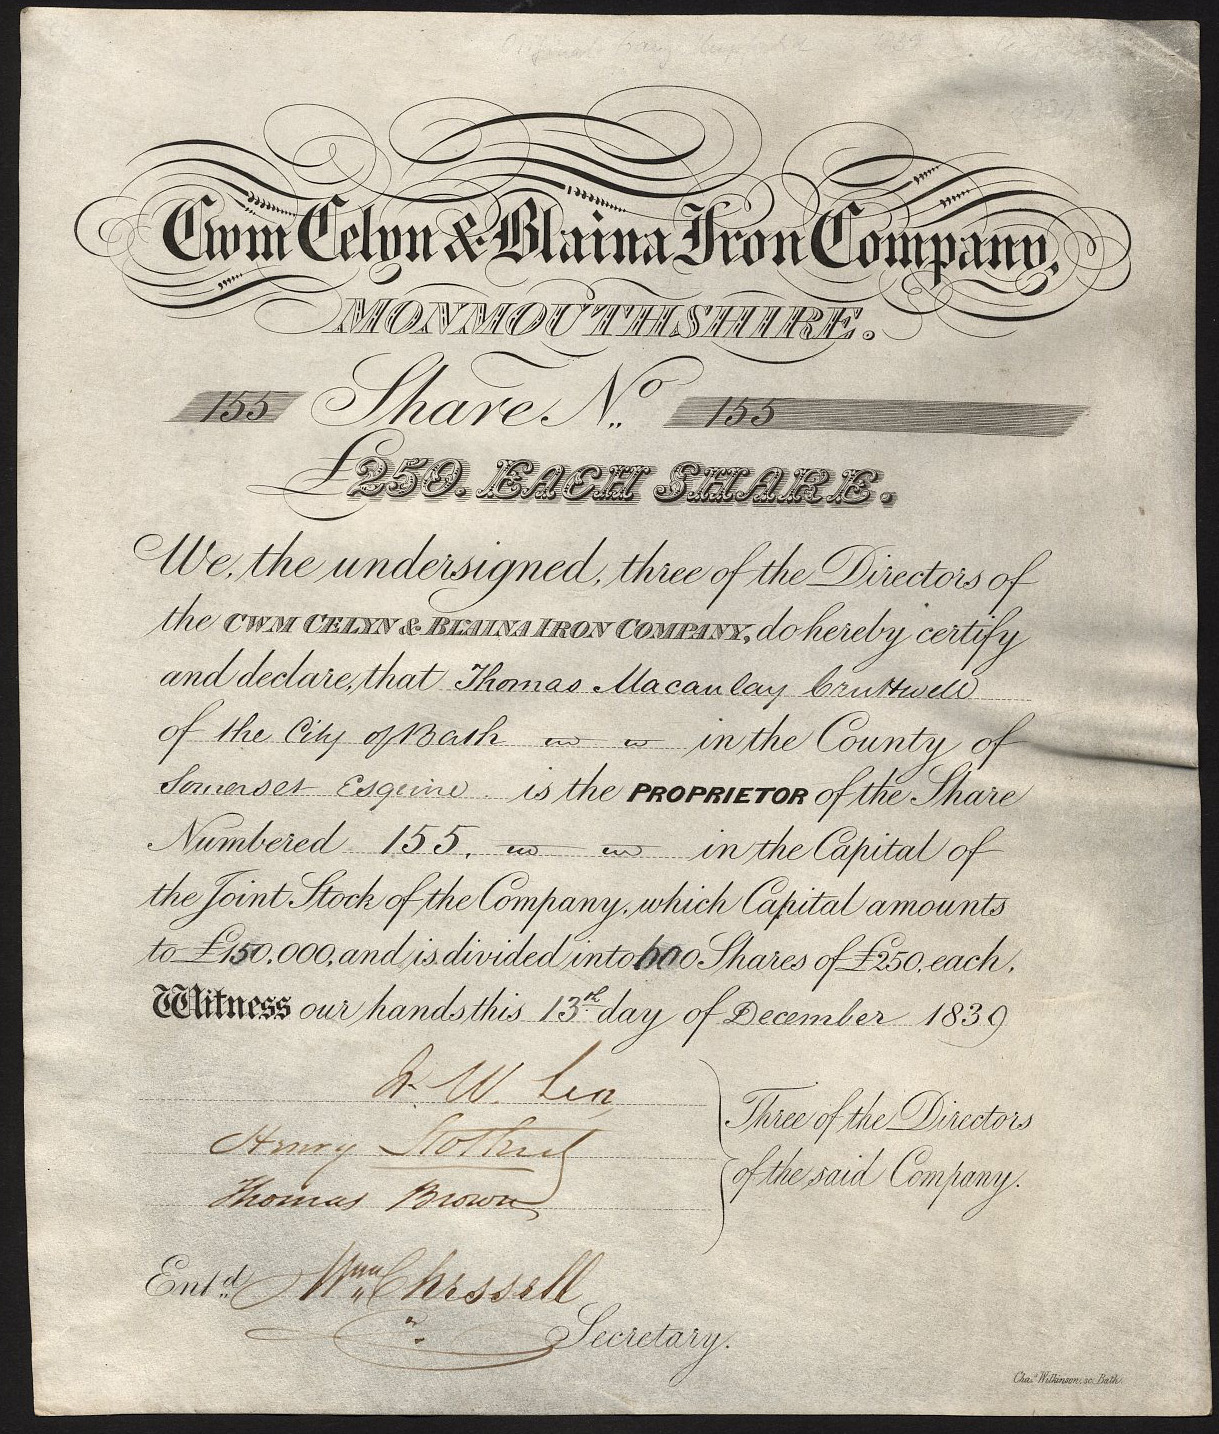 Cwm Celyn & Blaina Iron Company,
MONMOUTHSHIRE.
155 Share No. 155
£250. EACH SHARE.
We, the undersigned, three of the Directors of
the CWM CELYN & BLAINA IRON COMPANY, do hereby certify
and declare, that Thomas Macaulay Cruttwell
of the City of Bath in the County of
Somerset Esquire is the PROPRIETOR of the Share
Numbered 155. in the Capital of
the Joint Stock of the Company, which Capital amounts
to £150,000, and is divided into 600 Shares of £250, each.
Witness our hands this 13th day of December 1839
W. Lea
Henry Stothert
Thomas Brown
Three of the Directors
of the said Company.
Entd. Wm Chessell
Secretary.
Chas. Wilkinson, sc. Bath.